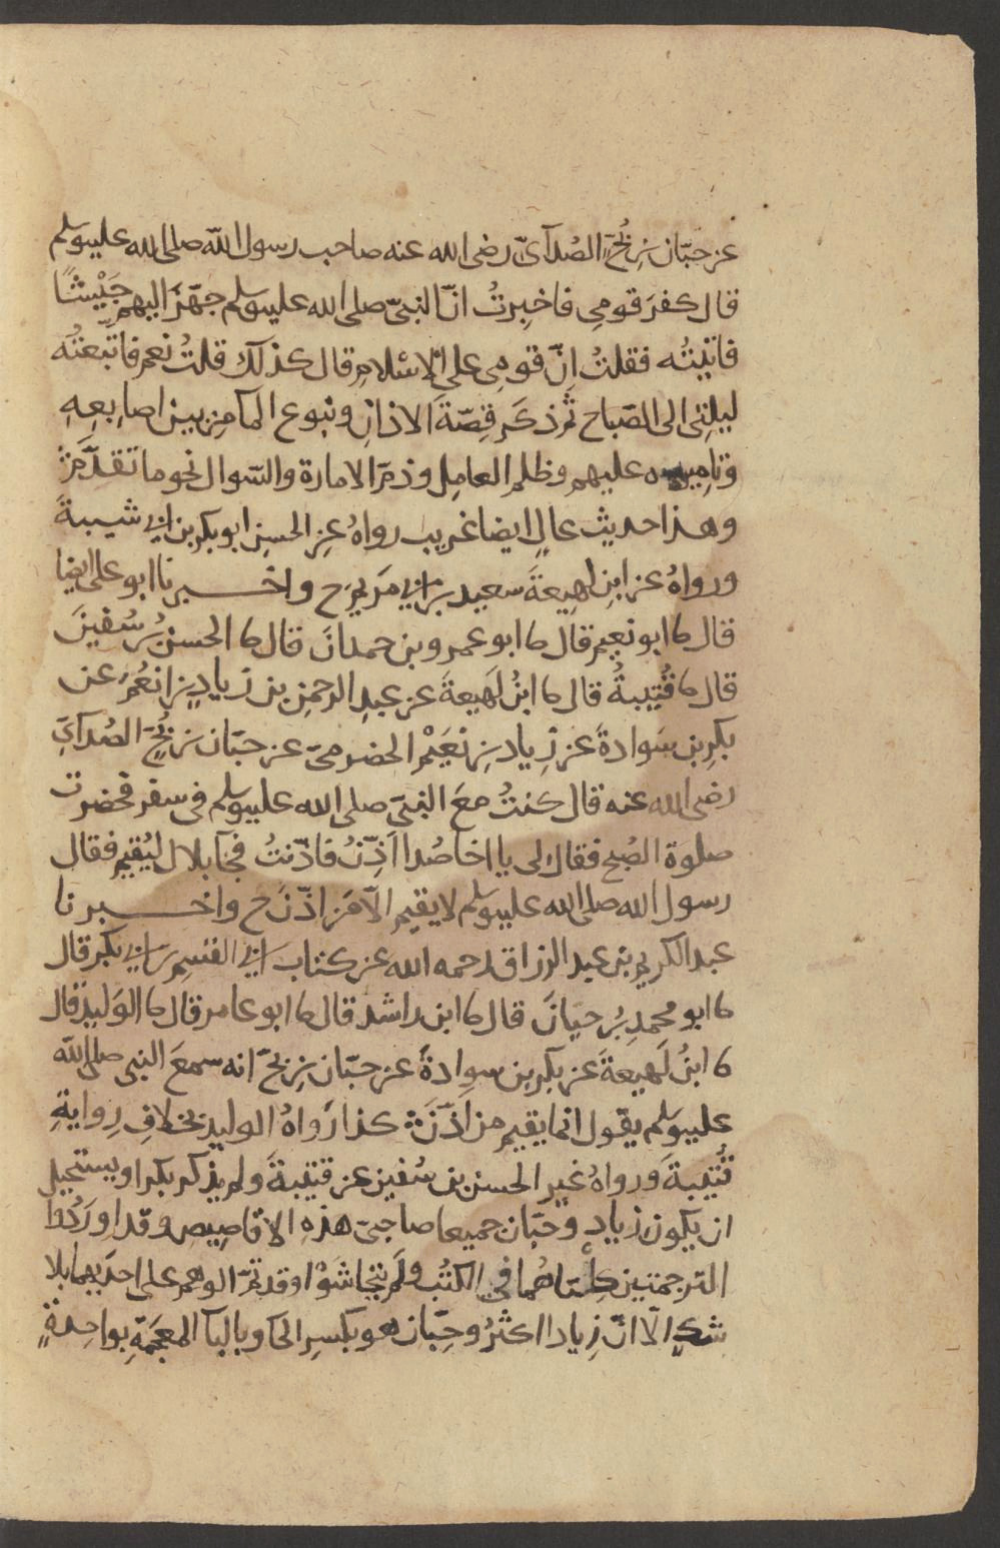 عن حبّان بن بُحّ الصُدآئيّ رضى الله عنه صاحب رسول الله صلى الله عليه وسلم
قال كفرَ قومِى فاخبِرتُ انّ النبىّ صلى الله عليه وسلم جهّزَ اليهم جَيْشًا
فاتيتُه فقلتُ اِنّ قومِى على الاِسْلامِ قال كذلك قلتُ نعم فاتّبعتُه
ليلتِى الى الصّباح ثم ذكَر قِصّةَ الاذانِ ونبوع المآ مِن بين اصابِعِهِ
وتامِيره عليهم وظلم العامِل وذمّ الامارة والسّوال نحو ما تقدّم ۞
وهذا حديث عالٍ ايضا غريب رواهُ عنِ الحسنِ ابو بكر بن ابى شيبةَ
ورواهُ عن ابنِ لهِيعةَ سعيد بن ابى مَريَم ح واخبرنا ابو على ايضا
قال ثنا ابو نعيم قال ثنا ابو عمرو بن حمدانَ قال ثنا الحسنُ بنُ سُفينَ
قال ثنا قُتَيبةُ قال ثنا ابنُ لَهيعةَ عن عبدِ الرحمنِ بن زيادِ بن انعُمَ عن
بكرِ بن سَوادةَ عن زِياد بن نعَيْم الحضرمىّ عن حبّان بن بُحّ الصُدآئِى
رضى الله عنه قال كنتُ معَ النبىّ صلى الله عليه وسلم فى سفر فحضرت
صلوة الصُبح فقال لى يا اخا صُدا اَذّنْ فاذّنتُ فجآ بلال ليُقيم فقال
رسول الله صلى الله عليه وسلم لا يقيم الّا مَن اذّنَ ح واخبرنا
عبد الكريم بن عبد الرزاق رحمه الله عن كتاب ابى القسم بن ابى بكر قال
ثنا ابو محمدِ بنُ حيانَ قال ثنا ابن راشد قال ثنا ابو عامر قال ثنا الوَليد قال
ثنا ابنُ لَهيعةَ عن بكر بن سوادةَ عن حبّان بن بُحّ انه سمعَ النبى صلى الله
عليه وسلم يقول انما يقيم من اَذّنَ ۞ كذا رَواهُ الوليد بخلافِ رِوايةِ
قُتَيبةَ ورواهُ غير الحسن بن سُفين عن قتيبةَ ولم يذكر بكرا ويستحيل
ان يكون زياد وحبّان جميعا صاحبىَ هذهِ الاقاصِيص وقد اورَدُوا
الترجمتين كِلتاهُما فى الكتُب ولَم يتحاشَوْا وقد تمّ الوهم على احدَيهما بلا
شكٍ الّا انّ زِيادا اكثرُ وحِبّان هو بكسرِ الحآ وبالبآ المعجَمَةِ بواحِدةٍ